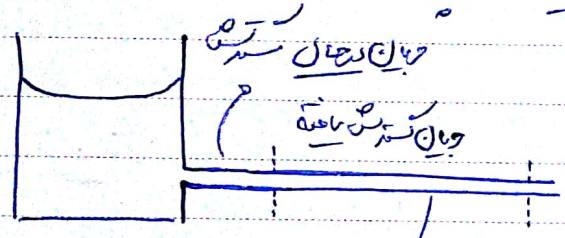 جریان در حال گسترش
جریان گسترش یافته